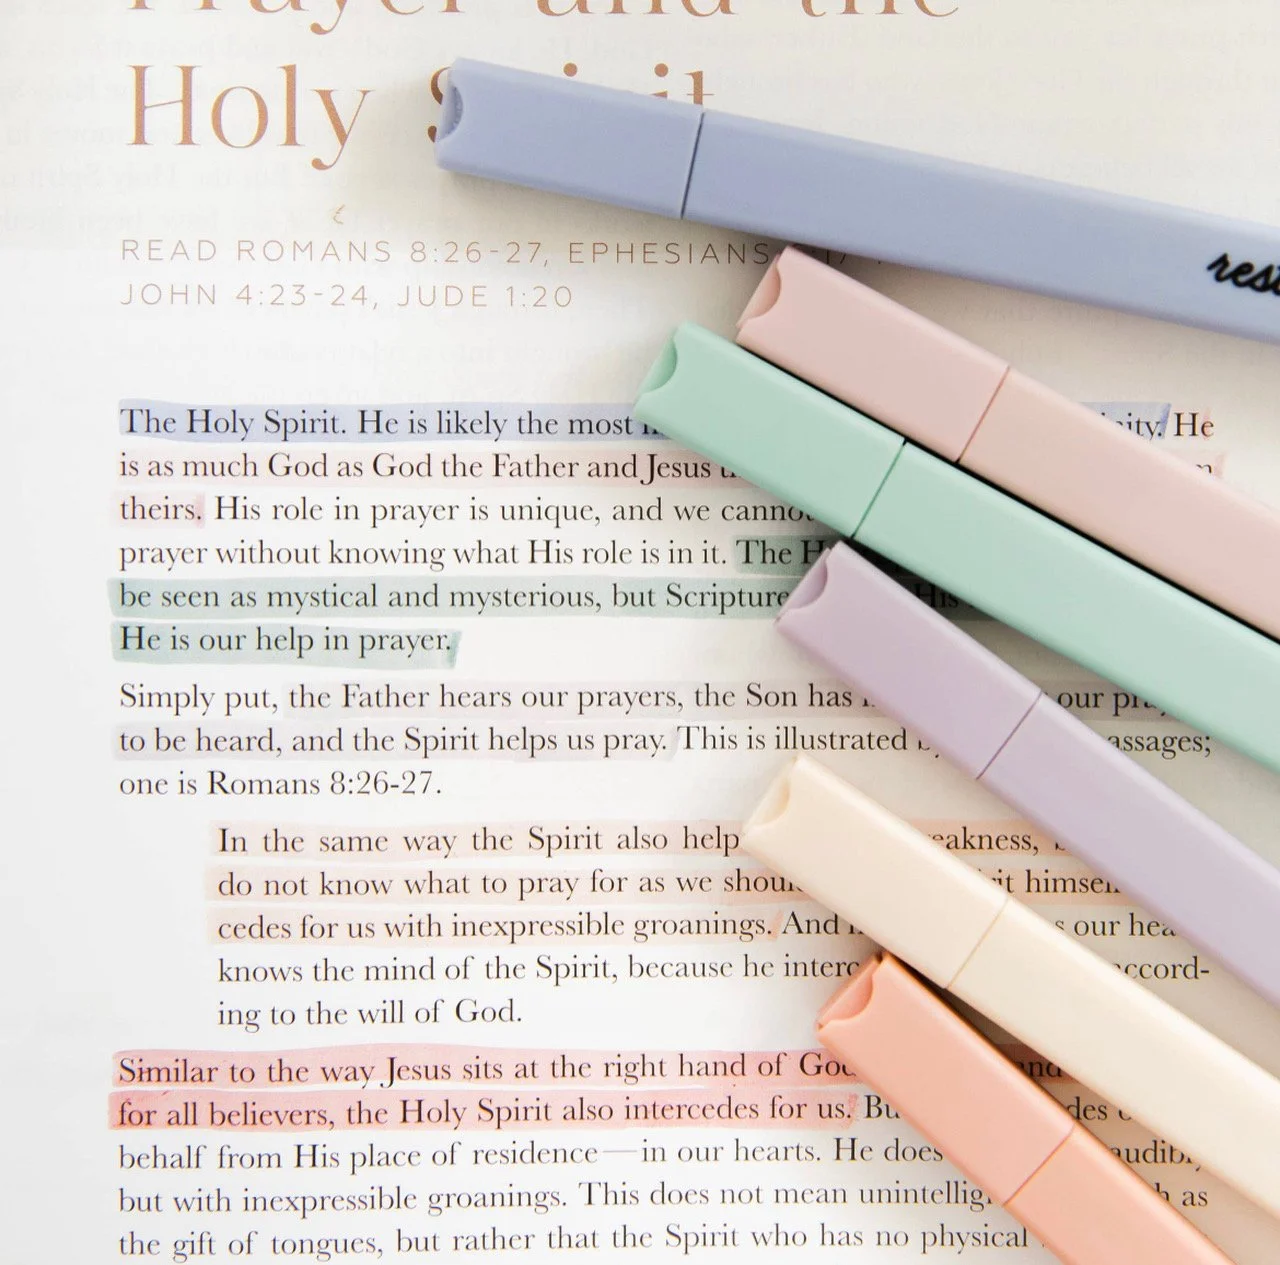 Prayer and the
Holy
READ ROMANS 8:26-27, EPHESIANS
JOHN 4:23-24, JUDE 1:20
rest
The Holy Spirit. He is likely the most He
is as much God as God the Father and Jesus
theirs. His role in prayer is unique, and we
prayer without knowing what His role is in it. The
be seen as mystical and mysterious, but Scripture His
He is our help in prayer.
Simply put, the Father hears our prayers, the Son has our
to be heard, and the Spirit helps us pray. This is illustrated
one is Romans 8:26-27.
In the same way the Spirit also
do not know what to pray for as we
cedes for us with inexpressible groanings. And our
knows the mind of the Spirit, because he accord-
ing to the will of God.
Similar to the way Jesus sits at the right hand of
for all believers, the Holy Spirit also intercedes for us.
behalf from His place of residence—in our hearts. He does
but with inexpressible groanings. This does not mean as
the gift of tongues, but rather that the Spirit who has no physical